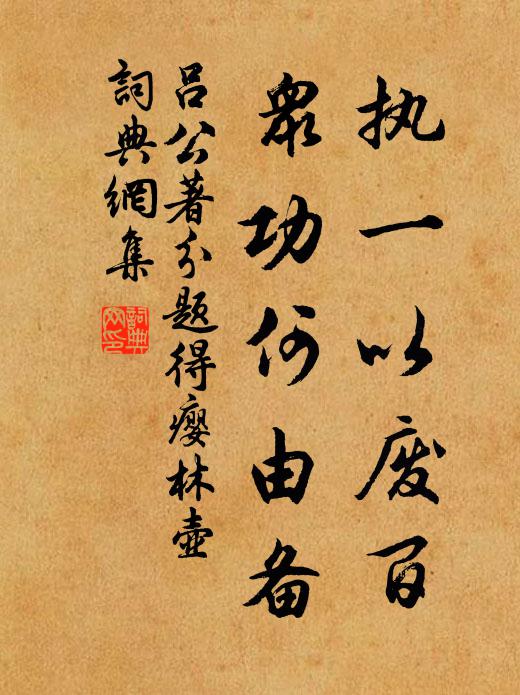 执一以废百
眾功何由备
呂公著分题得瘿林壶
詞典網集
詞典網印